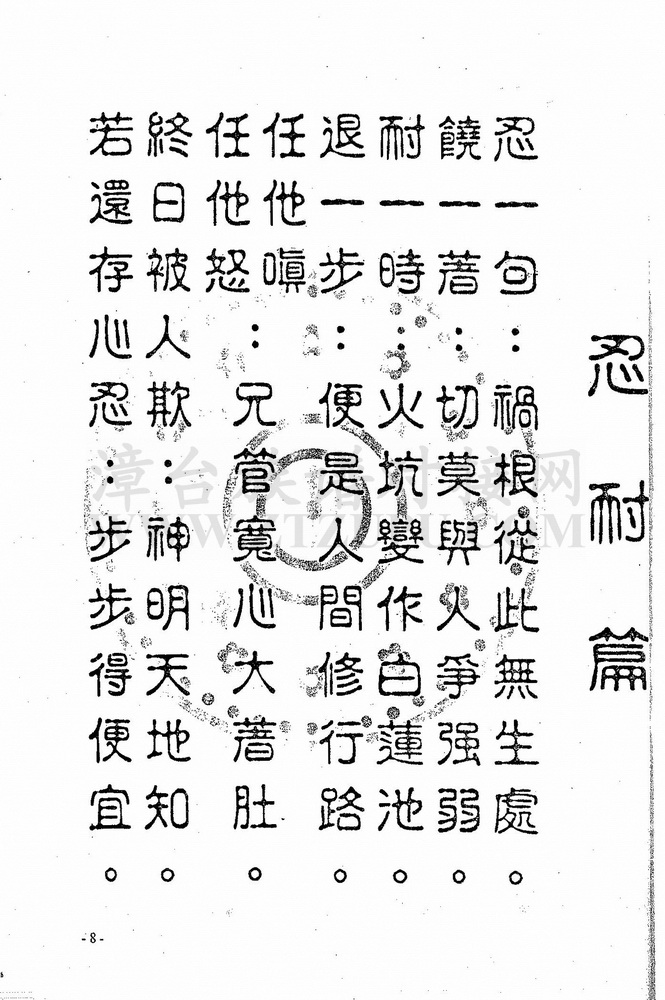 忍耐篇
忍一句：禍根從此無生處。
饒一著：切莫與人爭强弱。
耐一時：火坑變作白蓮池。
退一步：便是人間修行路。
任他嗔
任他怒
：兄管寬心大著肚。
終日被人欺：神明天地知。
若還存心忍：步步得便宜。
-8-